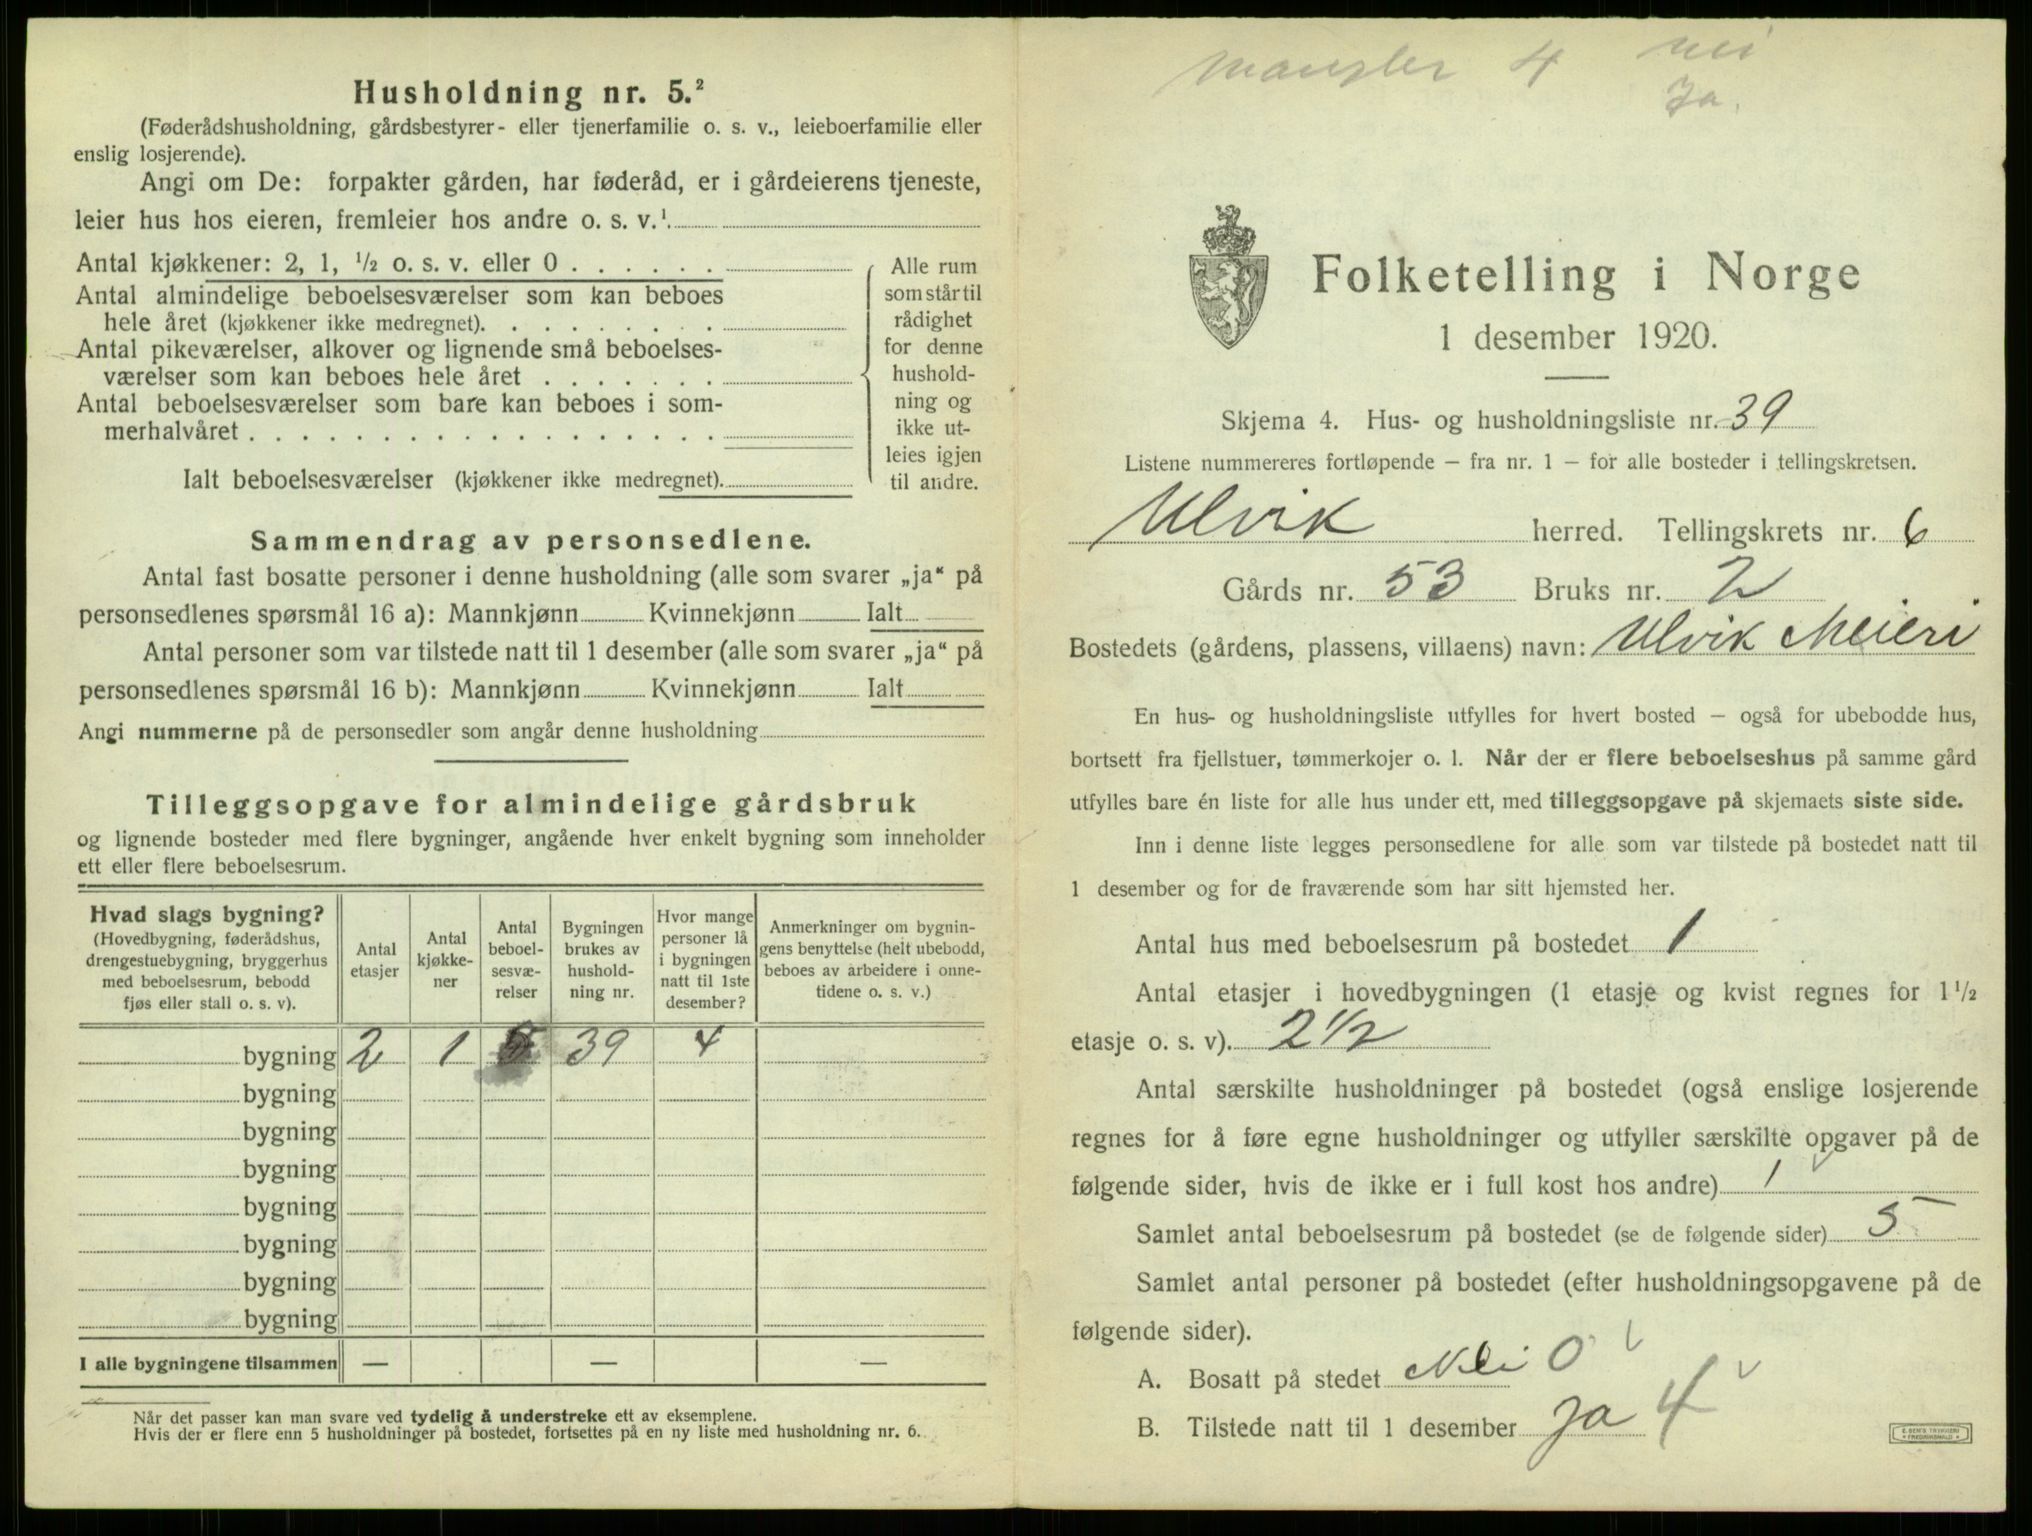 Husholdning nr. 5.²
(Føderådshusholdning, gårdsbestyrer- eller tjenerfamilie o. s. v., leieboerfamilie eller
enslig losjerende).
Angi om De: forpakter gården, har føderåd, er i gårdeierens tjeneste,
leier hus hos eieren, fremleier hos andre o. s. v.¹
Antal kjøkkener: 2, 1, ½ o. s. v. eller 0 . . . . . .
Antal almindelige beboelsesværelser som kan beboes
hele året (kjøkkener ikke medregnet). . . . . . . . .
Antal pikeværelser, alkover og lignende små beboelses-
værelser som kan beboes hele året . . . . . . .
Antal beboelsesværelser som bare kan beboes i som-
merhalvåret . . . . . . . . . . . . . . . . . .
Ialt beboelsesværelser (kjøkkener ikke medregnet).
Alle rum
som står til
rådighet
for denne
hushold-
ning og
ikke ut-
leies igjen
til andre.
Sammendrag av personsedlene.
Antal fast bosatte personer i denne husholdning (alle som svarer „ja“ på
personsedlenes spørsmål 16 a): Mannkjønn Kvinnekjønn Ialt
Antal personer som var tilstede natt til 1 desember (alle som svarer „ja“ på
personsedlenes spørsmål 16 b): Mannkjønn Kvinnekjønn Ialt
Angi nummerne på de personsedler som angår denne husholdning
Tilleggsopgave for almindelige gårdsbruk
og lignende bosteder med flere bygninger, angående hver enkelt bygning som inneholder
ett eller flere beboelsesrum.
Hvad slags bygning?
(Hovedbygning, føderådshus,
drengestuebygning, bryggerhus
med beboelsesrum, bebodd
fjøs eller stall o. s. v).
Antal
etasjer
Antal
kjøkke-
ner
Antal
beboel-
sesvæ-
relser
Bygningen
brukes av
hushold-
ning nr.
Hvor mange
personer lå
i bygningen
natt til 1ste
desember?
Anmerkninger om bygnin-
gens benyttelse (helt ubebodd,
beboes av arbeidere i onne-
tidene o. s. v.)
bygning 2 1 5 39 4
bygning
bygning
bygning
bygning
bygning
bygning
bygning
I alle bygningene tilsammen — — —
Når det passer kan man svare ved tydelig å understreke ett av eksemplene.
Hvis der er flere enn 5 husholdninger på bostedet, fortsettes på en ny liste med husholdning nr. 6.
mangler 4 nei
Ja.
Folketelling i Norge
1 desember 1920.
Skjema 4. Hus- og husholdningsliste nr. 39
Listene nummereres fortløpende — fra nr. 1 — for alle bosteder i tellingskretsen.
Ulvik herred. Tellingskrets nr. 6
Gårds nr. 53 Bruks nr. 2
Bostedets (gårdens, plassens, villaens) navn: Ulvik Meieri
En hus- og husholdningsliste utfylles for hvert bosted — også for ubebodde hus,
bortsett fra fjellstuer, tømmerkojer o. l. Når der er flere beboelseshus på samme gård
utfylles bare én liste for alle hus under ett, med tilleggsopgave på skjemaets siste side.
Inn i denne liste legges personsedlene for alle som var tilstede på bostedet natt til
1 desember og for de fraværende som har sitt hjemsted her.
Antal hus med beboelsesrum på bostedet 1
Antal etasjer i hovedbygningen (1 etasje og kvist regnes for 1½
etasje o. s. v). 2 1/2
Antal særskilte husholdninger på bostedet (også enslige losjerende
regnes for å føre egne husholdninger og utfyller særskilte opgaver på de
følgende sider, hvis de ikke er i full kost hos andre) 1
Samlet antal beboelsesrum på bostedet (se de følgende sider) 5
Samlet antal personer på bostedet (efter husholdningsopgavene på de
følgende sider).
A. Bosatt på stedet Nei 0
B. Tilstede natt til 1 desember Ja 4